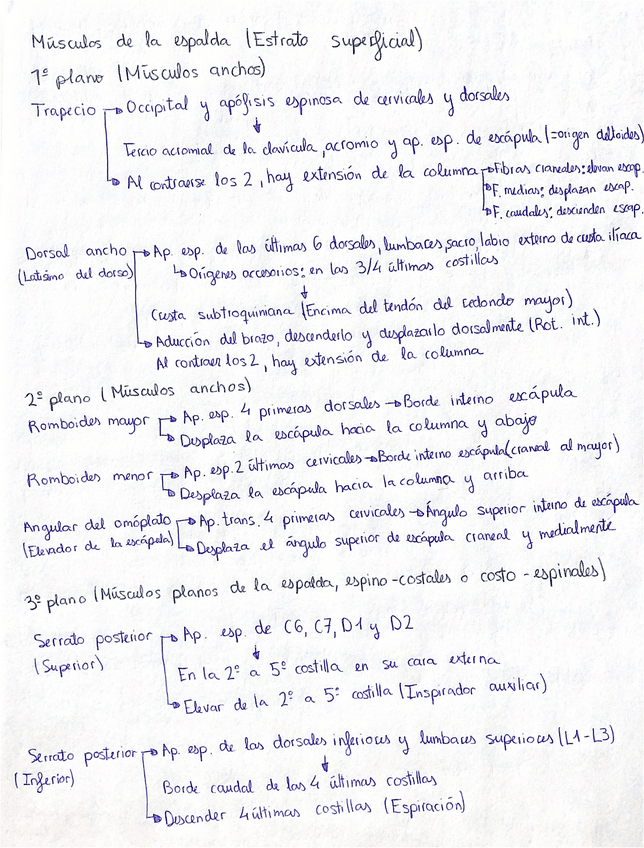 Músculos de la espalda (Estrato superficial)
1º plano (Músculos anchos)
Trapecio → Occipital y apófisis espinosa de cervicales y dorsales
↓
Tercio acromial de la clavícula, acromio y ap. esp. de escápula (=origen deltoides)
→ Al contraerse los 2, hay extensión de la columna → Fibras craneales: elevan escap.
→ F. medias: desplazan escap.
→ F. caudales: descienden escap.
Dorsal ancho → Ap. esp. de las últimas 6 dorsales, lumbares, sacro, labio externo de cresta ilíaca
(Latísimo del dorso) ↳ Orígenes accesorios: en las 3/4 últimas costillas
↓
Cresta subtroquiniana (Encima del tendón del redondo mayor)
→ Aducción del brazo, descenderlo y desplazarlo dorsalmente (Rot. int.)
Al contraer los 2, hay extensión de la columna
2º plano (Músculos anchos)
Romboides mayor → Ap. esp. 4 primeras dorsales → Borde interno escápula
→ Desplaza la escápula hacia la columna y abajo
Romboides menor → Ap. esp. 2 últimas cervicales → Borde interno escápula (craneal al mayor)
→ Desplaza la escápula hacia la columna y arriba
Angular del omóplato → Ap. trans. 4 primeras cervicales → Ángulo superior interno de escápula
(Elevador de la escápula) → Desplaza el ángulo superior de escápula craneal y medialmente
3º plano (Músculos planos de la espalda, espino-costales o costo-espinales)
Serrato posterior → Ap. esp. de C6, C7, D1 y D2
(Superior) ↓
En la 2º a 5º costilla en su cara externa
→ Elevar de la 2º a 5º costilla (Inspirador auxiliar)
Serrato posterior → Ap. esp. de las dorsales inferiores y lumbares superiores (L1-L3)
(Inferior) ↓
Borde caudal de las 4 últimas costillas
→ Descender 4 últimas costillas (Espiración)